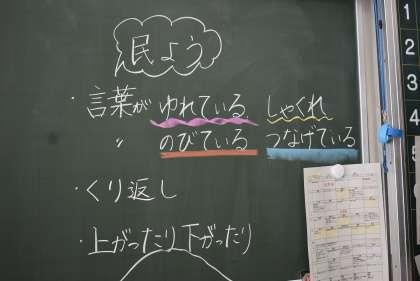 民よう
・言葉が ゆれている しゃくれ
〃 のびている つなげている
・くり返し
・上がったり下がったり
1
2
3
4
5